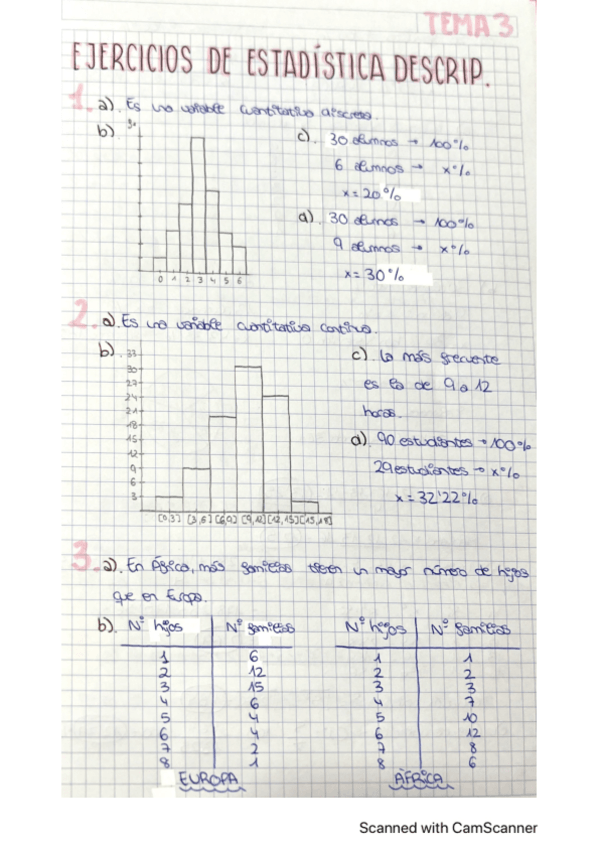 TEMA 3
EJERCICIOS DE ESTADÍSTICA DESCRIP.
1. a). Es una variable cuantitativa discreta.
b).
0 1 2 3 4 5 6
c). 30 alumnos → 100%
6 alumnos → x%
x = 20%
d). 30 alumnos → 100%
9 alumnos → x%
x = 30%
2. a). Es una variable cuantitativa continua.
b). 33
30
27
24
21
18
15
12
9
6
3
[0,3] [3,6] [6,9] [9,12] [12,15] [15,18]
c). La más frecuente
es la de 9 a 12
horas.
d). 90 estudiantes → 100%
29 estudiantes → x%
x = 32'22%
3. a). En África, más familias tienen un mayor número de hijos
que en Europa.
b). Nº hijos Nº familias
1 6
2 12
3 15
4 6
5 4
6 4
7 2
8 1
EUROPA
Nº hijos Nº familias
1 1
2 2
3 3
4 7
5 10
6 12
7 8
8 6
ÁFRICA
Scanned with CamScanner